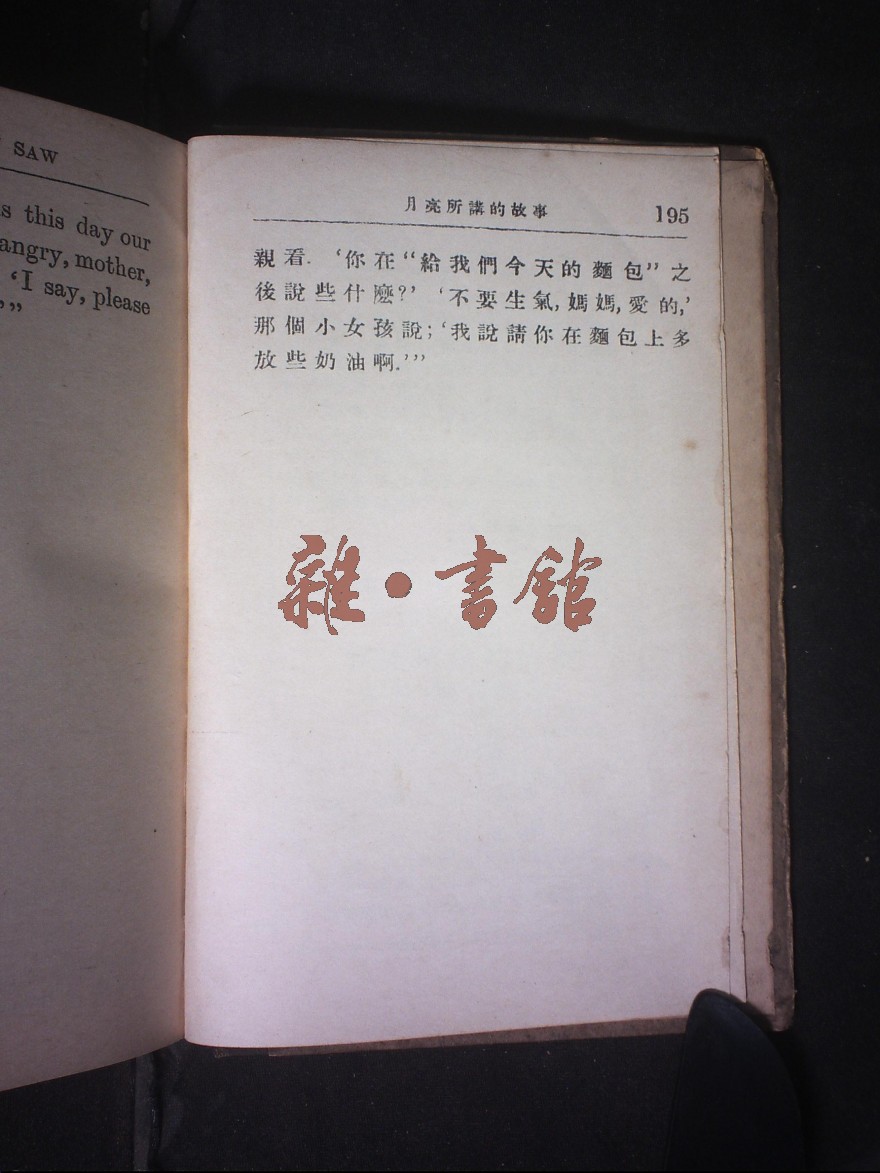 SAW
s this day our
angry, mother,
‘I say, please
,”
月亮所講的故事 195
親看. ‘你在“給我們今天的麵包”之
後說些什麽?’ ‘不要生氣,媽媽,愛的,’
那個小女孩說; ‘我說請你在麵包上多
放些奶油啊.’”
雜·書館